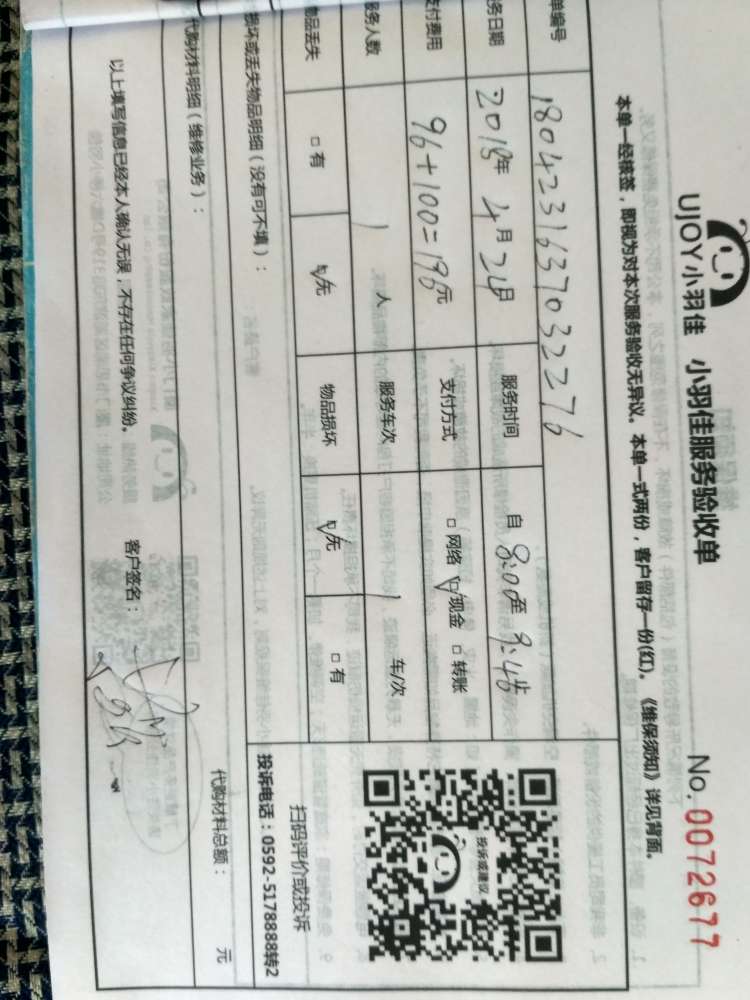 UJOY小羽佳 小羽佳服务验收单
No. 0072677
本单一经接签，即视为对本次服务验收无异议。本单一式两份，客户留存一份(红)。《维保须知》详见背面。
单编号 1804231637032276
务日期 2018年 4月 24日 服务时间 自 8:00至 9:48
支付费用 96+100=196元 支付方式 □ 网络 ☑现金 □ 转账
服务人数 1 人 服务车次 1 车/次
物品丢失 □ 有 ☑无 物品损坏 ☑无 □ 有
投诉或建议
扫码评价或投诉
投诉电话：0592-5178888转2
损坏或丢失物品明细（没有可不填）：
代购材料明细（维修业务）：
代购材料总额： 元
以上填写信息已经本人确认无误，不存在任何争议纠纷。 客户签名：